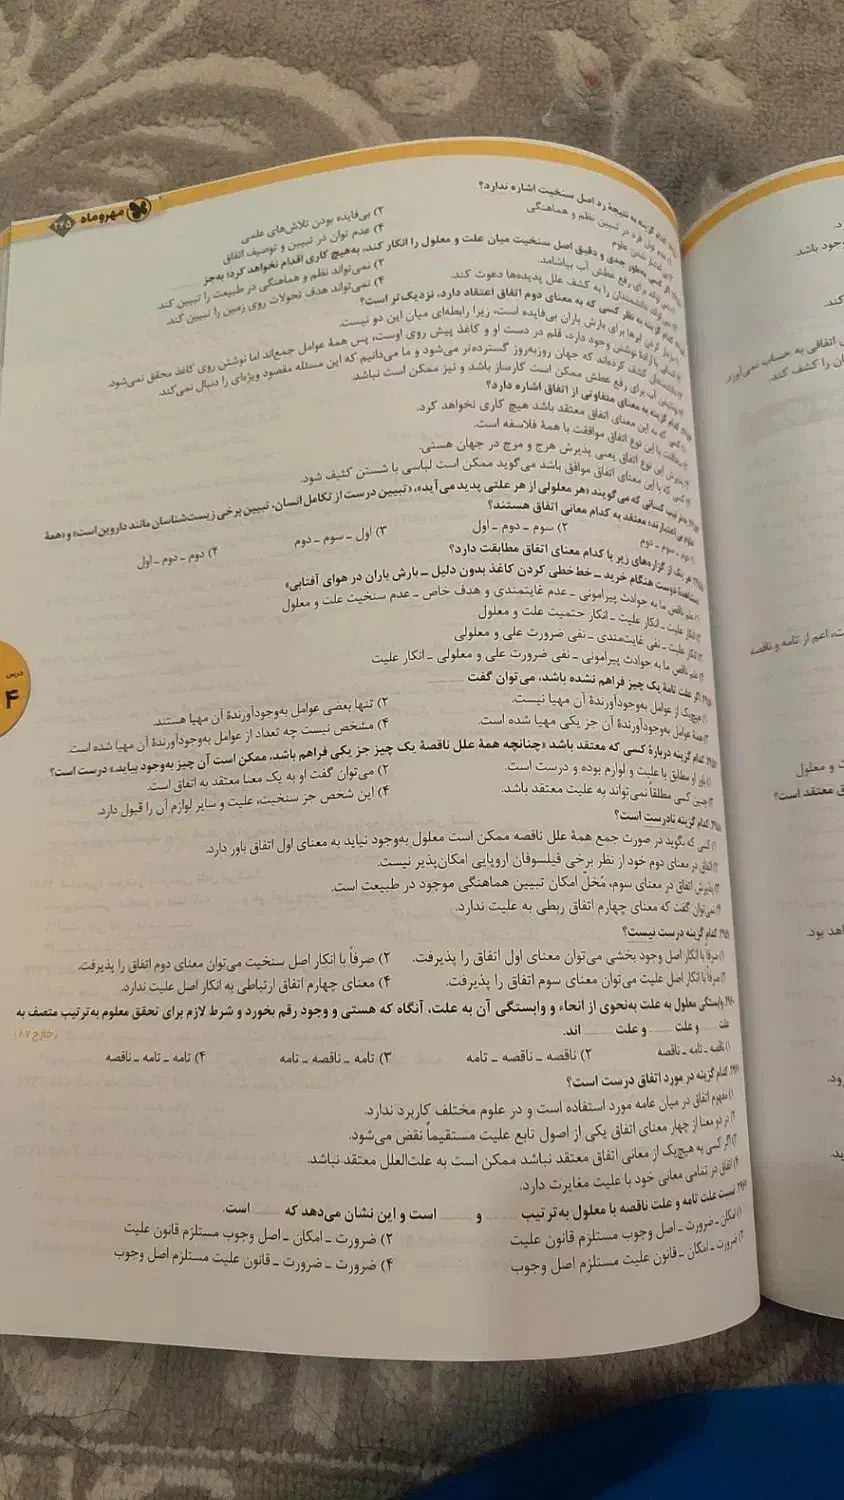 مهروماه ۲۴۵
کدام گزینه به نتیجهٔ رد اصل سنخیت اشاره ندارد؟
تبیین نظم و هماهنگی
۲) بی‌فایده بودن تلاش‌های علمی
شدن علوم
۴) عدم توان در تبیین و توصیف اتفاق
اگر کسی به‌طور جدی و دقیق اصل سنخیت میان علت و معلول را انکار کند، به‌هیچ کاری اقدام نخواهد کرد؛ به‌جز
برای رفع عطش آب بیاشامد.
۲) نمی‌تواند نظم و هماهنگی در طبیعت را تبیین کند.
دانشمندان را به کشف علل پدیده‌ها دعوت کند.
۴) نمی‌تواند هدف تحولات روی زمین را تبیین کند.
کدام گزینه به نظر کسی که به معنای دوم اتفاق اعتقاد دارد، نزدیک‌تر است؟
ابرها برای بارش باران بی‌فایده است، زیرا رابطه‌ای میان این دو نیست.
نوشتن وجود دارد، قلم در دست او و کاغذ پیش روی اوست، پس همهٔ عوامل جمع‌اند اما نوشتن روی کاغذ محقق نمی‌شود.
کشف کرده‌اند که جهان روزبه‌روز گسترده‌تر می‌شود و ما می‌دانیم که این مسئله مقصود ویژه‌ای را دنبال نمی‌کند.
آب برای رفع عطش ممکن است کارساز باشد و نیز ممکن است نباشد.
کدام گزینه به معنای متفاوتی از اتفاق اشاره دارد؟
کسی که به این معنای اتفاق معتقد باشد هیچ کاری نخواهد کرد.
با این نوع اتفاق موافقت با همهٔ فلاسفه است.
پذیرش این نوع اتفاق یعنی پذیرش هرج و مرج در جهان هستی.
کسی که با این معنای اتفاق موافق باشد می‌گوید ممکن است لباسی با شستن کثیف شود.
به‌ترتیب کسانی که می‌گویند «هر معلولی از هر علتی پدید می‌آید»، «تبیین درست از تکامل انسان، تبیین برخی زیست‌شناسان مانند داروین است» و «همهٔ
علوم بی‌اعتبارند» معتقد به کدام معانی اتفاق هستند؟
۱) دوم ـ سوم ـ دوم
۲) سوم ـ دوم ـ اول
۳) اول ـ سوم ـ دوم
۴) دوم ـ دوم ـ اول
هر یک از گزاره‌های زیر با کدام معنای اتفاق مطابقت دارد؟
«مشاهدهٔ دوست هنگام خرید ـ خط‌خطی کردن کاغذ بدون دلیل ـ بارش باران در هوای آفتابی»
۱) علم ناقص ما به حوادث پیرامونی ـ عدم غایتمندی و هدف خاص ـ عدم سنخیت علت و معلول
۲) انکار علیت ـ انکار علیت ـ انکار حتمیت علت و معلول
۳) انکار علیت ـ نفی غایت‌مندی ـ نفی ضرورت علی و معلولی
۴) علم ناقص ما به حوادث پیرامونی ـ نفی ضرورت علی و معلولی ـ انکار علیت
اگر علت تامهٔ یک چیز فراهم نشده باشد، می‌توان گفت
۱) هیچ‌یک از عوامل به‌وجودآورندهٔ آن مهیا نیست.
۲) تنها بعضی عوامل به‌وجودآورندهٔ آن مهیا هستند.
۳) همهٔ عوامل به‌وجودآورندهٔ آن جز یکی مهیا شده است.
۴) مشخص نیست چه تعداد از عوامل به‌وجودآورندهٔ آن مهیا شده است.
کدام گزینه دربارهٔ کسی که معتقد باشد «چنانچه همهٔ علل ناقصهٔ یک چیز جز یکی فراهم باشد، ممکن است آن چیز به‌وجود بیاید» درست است؟
۱) باور او مطابق با علیت و لوازم بوده و درست است.
۲) می‌توان گفت او به یک معنا معتقد به اتفاق است.
۳) چنین کسی مطلقاً نمی‌تواند به علیت معتقد باشد.
۴) این شخص جز سنخیت، علیت و سایر لوازم آن را قبول دارد.
کدام گزینه نادرست است؟
۱) کسی که بگوید در صورت جمع همهٔ علل ناقصه ممکن است معلول به‌وجود نیاید به معنای اول اتفاق باور دارد.
۲) اتفاق در معنای دوم خود از نظر برخی فیلسوفان اروپایی امکان‌پذیر نیست.
۳) پذیرش اتفاق در معنای سوم، مُخلّ امکان تبیین هماهنگی موجود در طبیعت است.
۴) نمی‌توان گفت که معنای چهارم اتفاق ربطی به علیت ندارد.
کدام گزینه درست نیست؟
۱) صرفاً با انکار اصل وجود بخشی می‌توان معنای اول اتفاق را پذیرفت.
۲) صرفاً با انکار اصل سنخیت می‌توان معنای دوم اتفاق را پذیرفت.
۳) صرفاً با انکار اصل علیت می‌توان معنای سوم اتفاق را پذیرفت.
۴) معنای چهارم اتفاق ارتباطی به انکار اصل علیت ندارد.
وابستگی معلول به علت به‌نحوی از انحاء و وابستگی آن به علت، آنگاه که هستی و وجود رقم بخورد و شرط لازم برای تحقق معلوم به‌ترتیب متصف به
علت و علت و علت اند.
(خارج ۸۷)
۱) ناقصه ـ تامه ـ ناقصه
۲) ناقصه ـ ناقصه ـ تامه
۳) تامه ـ ناقصه ـ تامه
۴) تامه ـ تامه ـ ناقصه
کدام گزینه در مورد اتفاق درست است؟
۱) مفهوم اتفاق در میان عامه مورد استفاده است و در علوم مختلف کاربرد ندارد.
۲) در دو معنا از چهار معنای اتفاق یکی از اصول تابع علیت مستقیماً نقض می‌شود.
۳) اگر کسی به هیچ‌یک از معانی اتفاق معتقد نباشد ممکن است به علت‌العلل معتقد نباشد.
۴) اتفاق در تمامی معانی خود با علیت مغایرت دارد.
نسبت علت تامه و علت ناقصه با معلول به‌ترتیب و است و این نشان می‌دهد که است.
۱) امکان ـ ضرورت ـ اصل وجوب مستلزم قانون علیت
۲) ضرورت ـ امکان ـ اصل وجوب مستلزم قانون علیت
۳) ضرورت ـ امکان ـ قانون علیت مستلزم اصل وجوب
۴) ضرورت ـ ضرورت ـ قانون علیت مستلزم اصل وجوب
درس
۴
وجود باشد.
اتفاقی به حساب نمی‌آورد.
را کشف کند.
اعم از تامه و ناقصه
ت و معلول
معتقد است؟